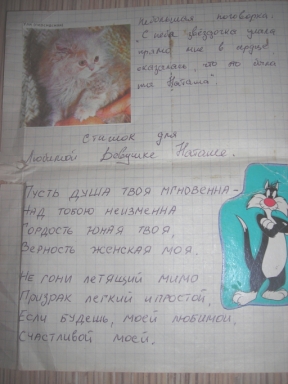 Небольшая поговорка:
"С неба звёздочка упала
прямо мне в
сказалась, что
та Наташа".
Стишок для
Любимой Бабушке Наташе.
Пусть душа твоя мгновенна –
Над тобою неизменна
Гордость юная твоя,
Верность женская моя.
Не гони летящий мимо
Призрак легкий и простой,
Если будешь, моей любимой,
Счастливой моей.